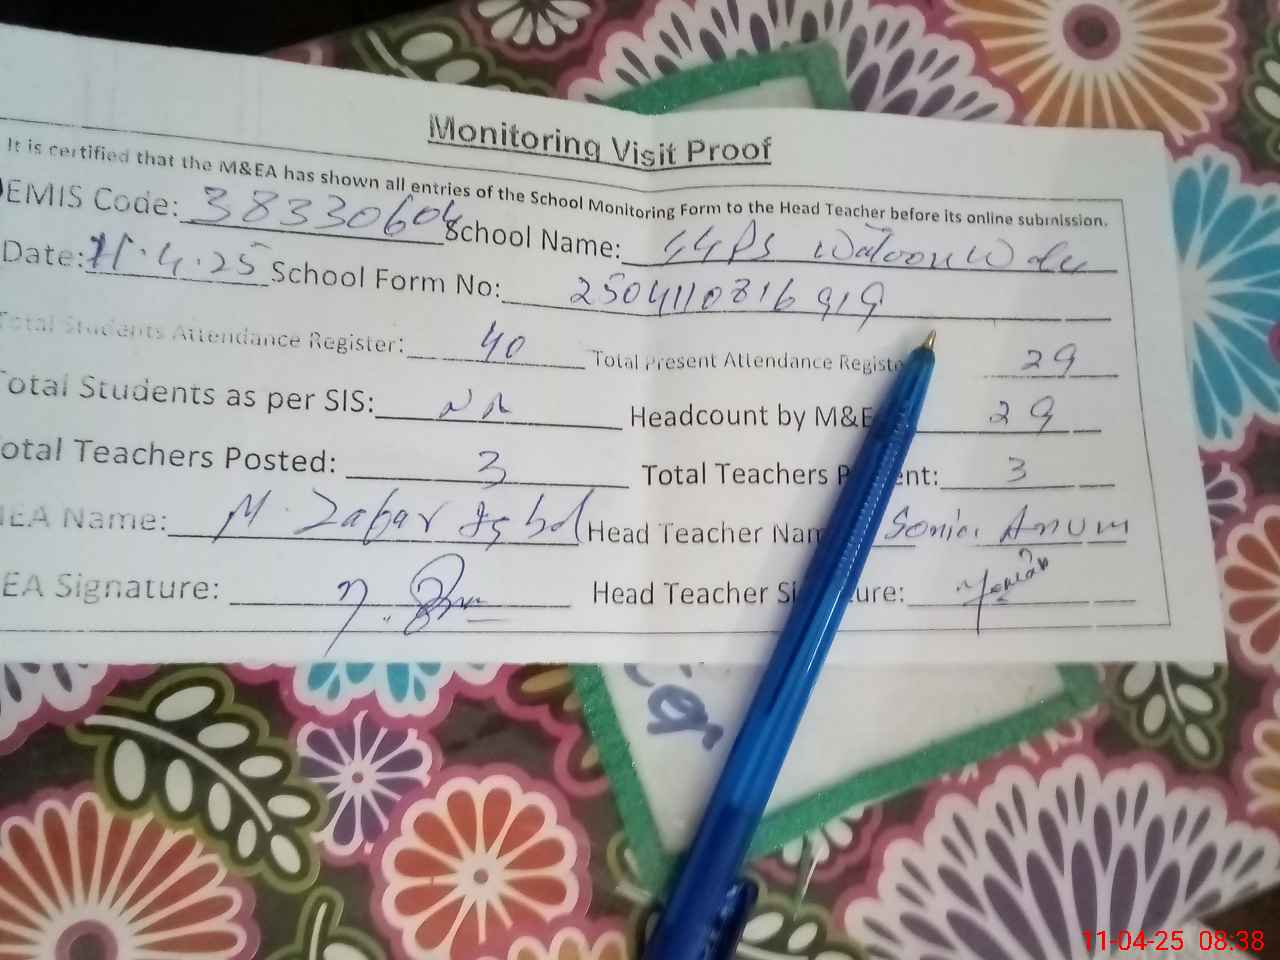 Monitoring Visit Proof
It is certified that the M&EA has shown all entries of the School Monitoring Form to the Head Teacher before its online submission.
EMIS Code: 38330604 School Name: GGPS
Date: 11.4.25 School Form No: 2504110816919
Total Students Attendance Register: 40 Total Present Attendance Registe 29
Total Students as per SIS: NA Headcount by M&E 29
otal Teachers Posted: 3 Total Teachers P ent: 3
EA Name: M. Zafar Iqbal Head Teacher Nam Sonia Anum
EA Signature: Head Teacher Si ure:
11-04-25 08:38